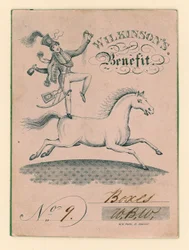 WILKINSON'S
Benefit.
No. 9.
Boxes
W.B.W.